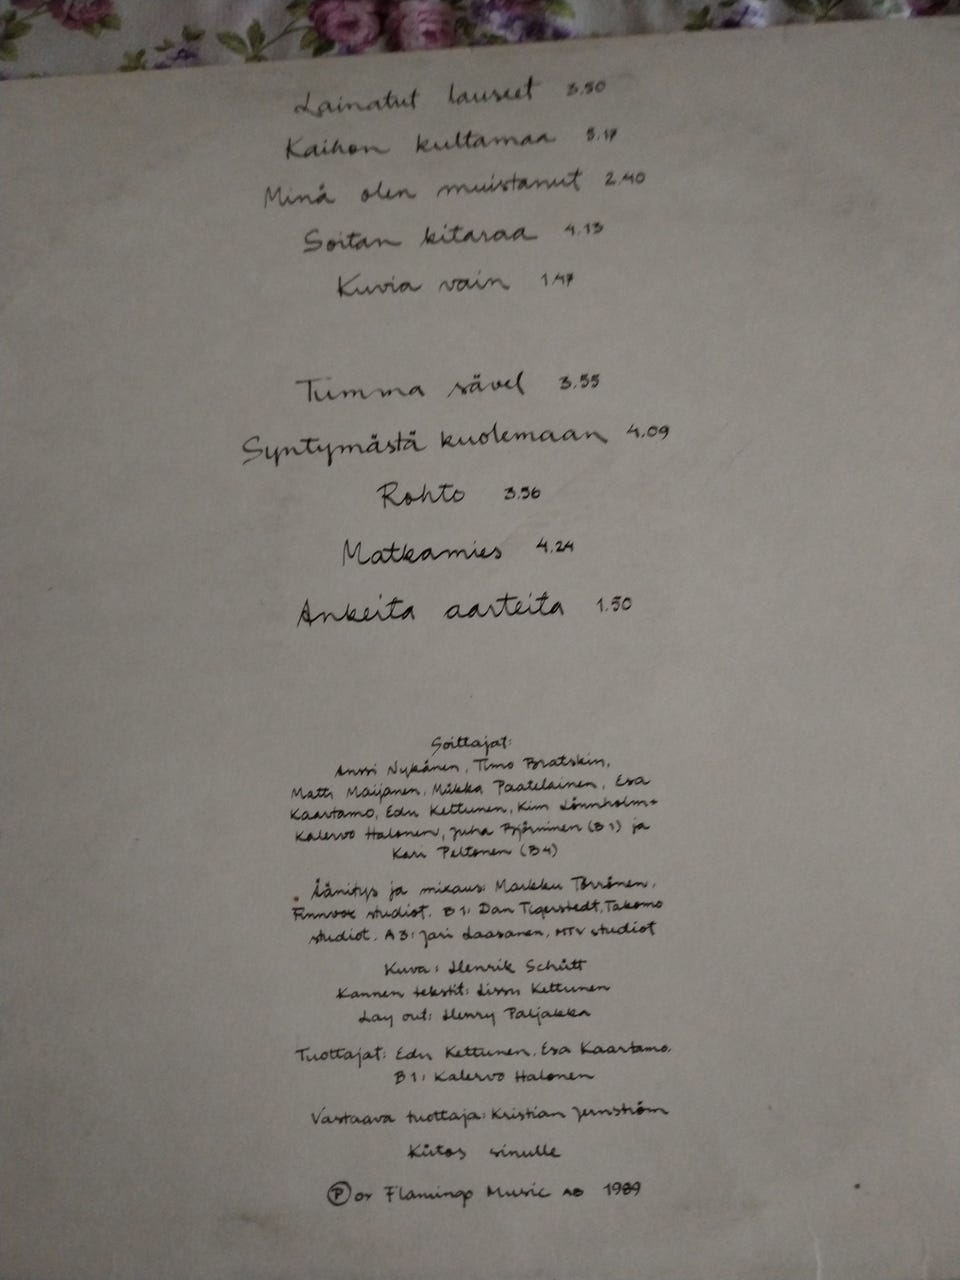 Lainatut lauseet 3.50
Kaihon kultamaa 5.17
Minä olen muistanut 2.40
Soitan kitaraa 4.13
Kuvia vain 1.47
Tumma sävel 3.55
Syntymästä kuolemaan 4.09
Rohto 3.56
Matkamies 4.24
Ankeita aarteita 1.50
Soittajat:
Anssi Nykänen, Timo Bratskin,
Matti Maijanen, Miikka Paatelainen, Esa
Kaartamo, Edu Kettunen, Kim Lönnholm,
Kalervo Halonen, Juha Björninen (B1) ja
Kari Peltonen (B4)
Äänitys ja mixaus: Markku Törrönen,
Finnvox studiot. B1: Dan Tigerstedt, Takomo
studiot. A3: Jari Laasanen, MTV studiot
Kuva: Henrik Schütt
Kannen tekstit: Lissu Kettunen
Lay out: Henry Paljakka
Tuottajat: Edu Kettunen, Esa Kaartamo.
B1: Kalervo Halonen
Vastaava tuottaja: Kristian Jernström
Kiitos sinulle
Ⓟ Flamingo Music AB 1989